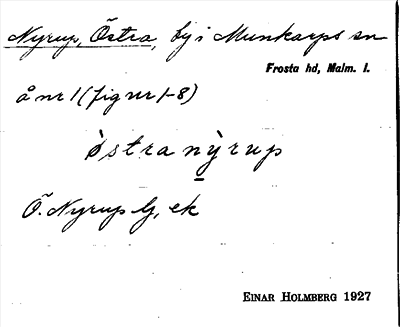 Nyrup, Östra, by i Munkarps sn
Frosta hd, Malm. l.
å nr 1 (fig nr 1-8)
òstra nỳrup
Ö. Nyrup lg, ek
EINAR HOLMBERG 1927